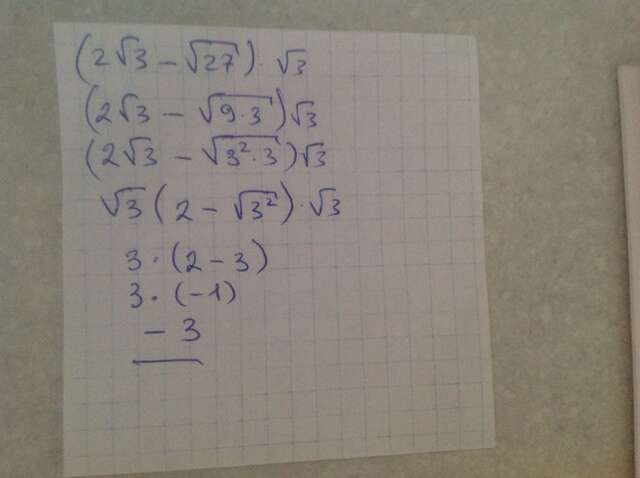 (2√3 − √27) · √3
(2√3 − √9·3)√3
(2√3 − √3²·3)√3
√3(2 − √3²) · √3
3 · (2 − 3)
3 · (−1)
− 3